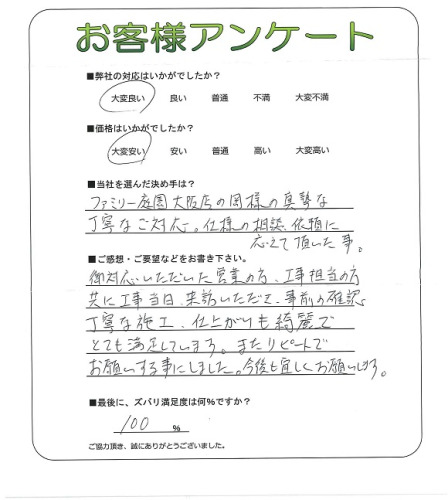 お客様アンケート
■弊社の対応はいかがでしたか？
大変良い 良い 普通 不満 大変不満
■価格はいかがでしたか？
大変安い 安い 普通 高い 大変高い
■当社を選んだ決め手は？
ファミリー庭園大阪店の岡様の真摯な
丁寧なご対応。仕様の相談、依頼に
応えて頂いた事。
■ご感想・ご要望などをお書き下さい。
御対応いただいた営業の方、工事担当の方
共に工事当日来訪いただき、事前の確認、
丁寧な施工、仕上がりも綺麗で
とても満足してします。またリピートで
お願いする事にしました。今後も宜しくお願いします。
■最後に、ズバリ満足度は何％ですか？
100 ％
ご協力頂き、誠にありがとうございました。